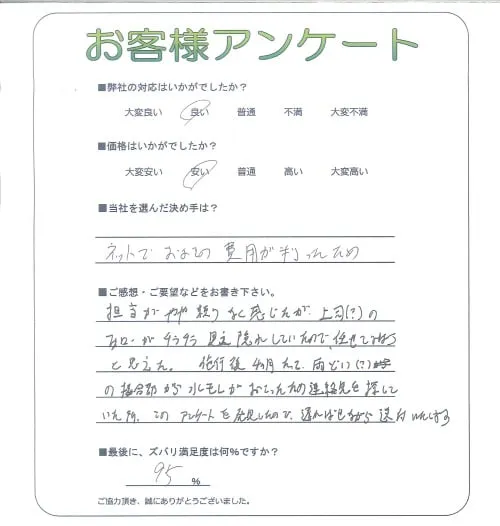 お客様アンケート
■弊社の対応はいかがでしたか？
大変良い 良い 普通 不満 大変不満
■価格はいかがでしたか？
大変安い 安い 普通 高い 大変高い
■当社を選んだ決め手は？
ネットでおおよその費用が判ったため
■ご感想・ご要望などをお書き下さい。
担当がやや頼りなく感じたが、上司(？)の
フォローがチラチラ見え隠れしていたので、任せてみよう
と思えた。施行後4ヶ月たって、雨どい(？)
の接合部から水もれがおこったため連絡先を探して
いた所、このアンケートを発見したので、遅ればせながら送付いたします
■最後に、ズバリ満足度は何％ですか？
95 ％
ご協力頂き、誠にありがとうございました。